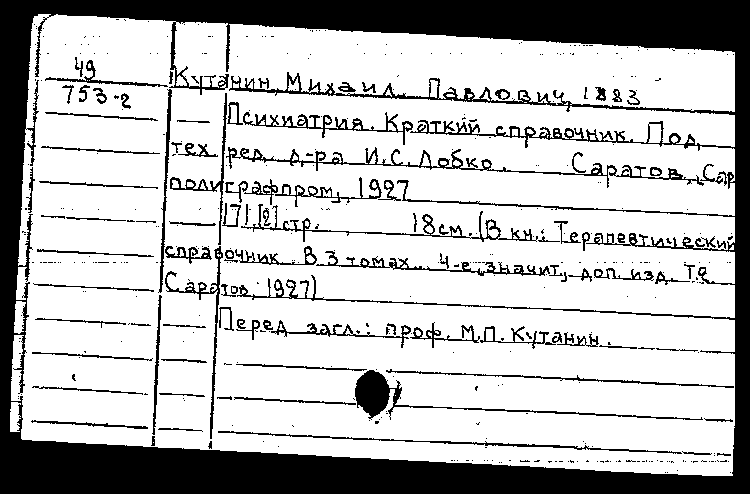 49
753-2
Кутанин, Михаил Павлович, 1883
Психиатрия. Краткий справочник. Под
тех. ред. д-ра И.С. Лобко. Саратов, "Сар
полиграфпром", 1927
171, [2] стр. 18 см. (В кн.: Терапевтический
справочник. В 3 томах. 4-е, значит, доп. изд. Т.
Саратов, 1927)
Перед загл.: проф. М.П. Кутанин.